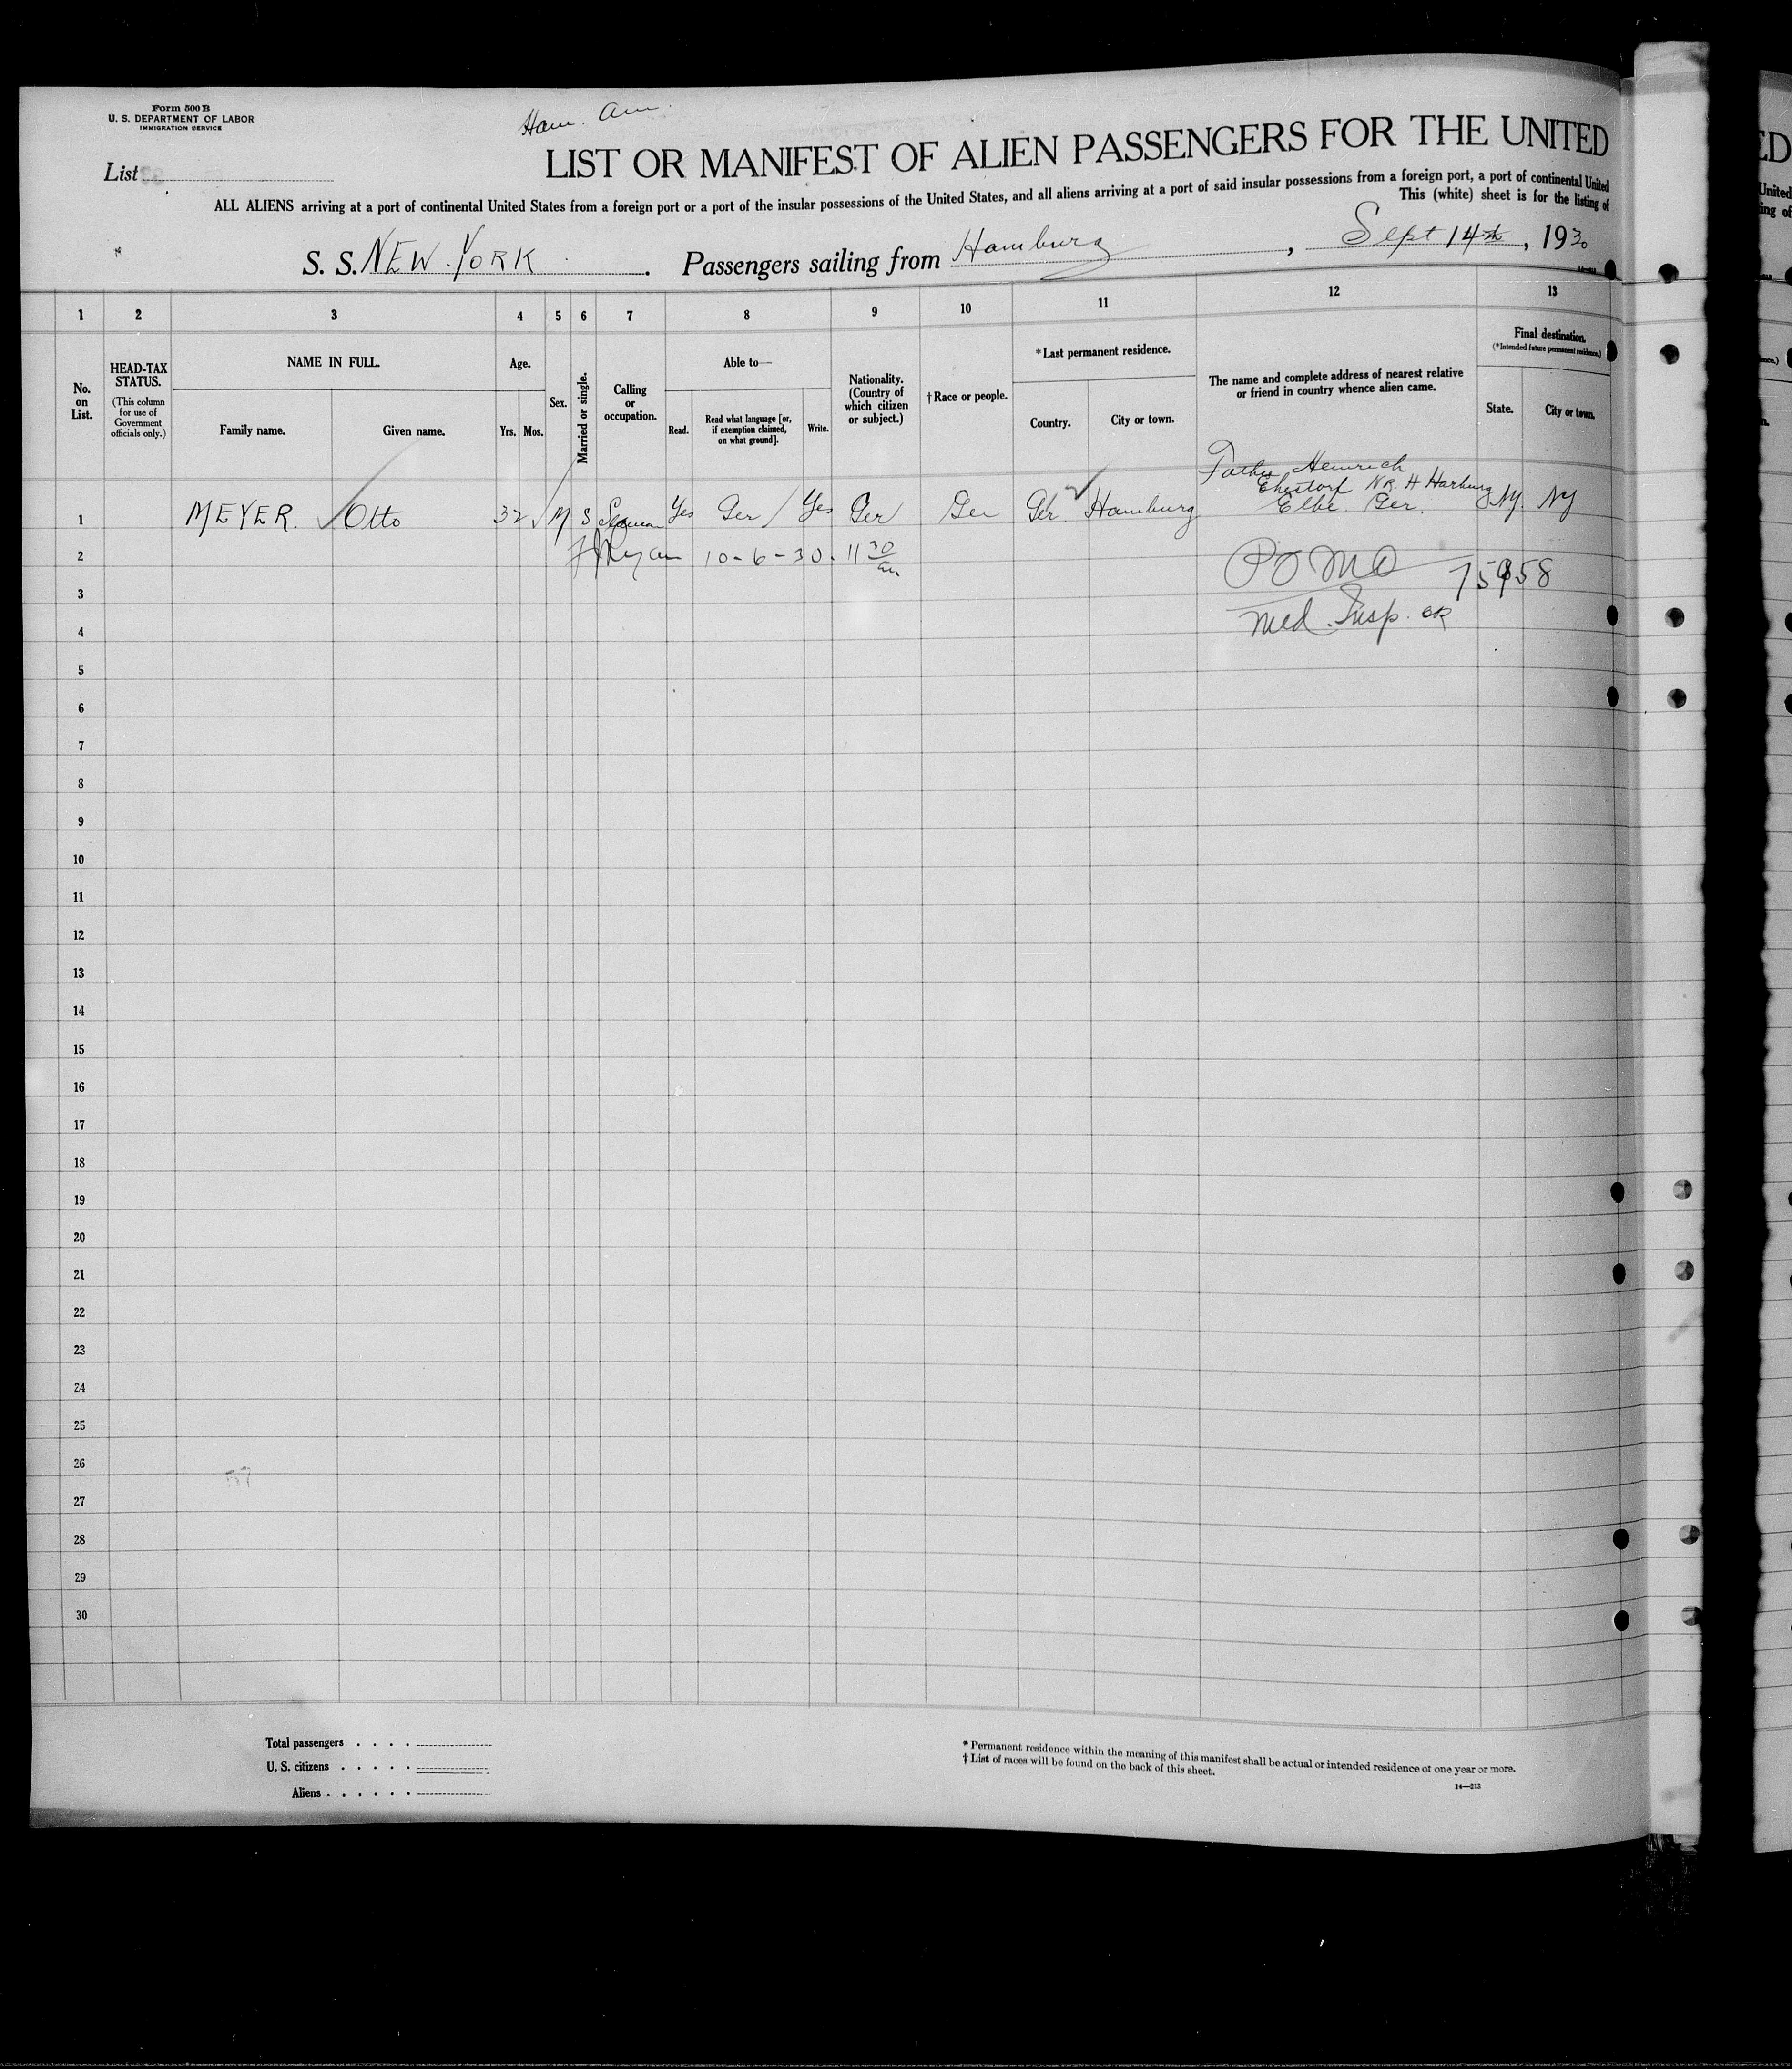 Form 500 B
U. S. DEPARTMENT OF LABOR
IMMIGRATION SERVICE
Ham. Am.
List
LIST OR MANIFEST OF ALIEN PASSENGERS FOR THE UNITED
ALL ALIENS arriving at a port of continental United States from a foreign port or a port of the insular possessions of the United States, and all aliens arriving at a port of said insular possessions from a foreign port, a port of continental United
This (white) sheet is for the listing of
S. S. NEW YORK. Passengers sailing from Hamburg, Sept 14th, 1930
1 2 3 4 5 6 7 8 9 10 11 12 13
No. on List.
HEAD-TAX STATUS.
(This column for use of Government officials only.)
NAME IN FULL.
Family name.
Given name.
Age.
Yrs. Mos.
Sex.
Married or single.
Calling or occupation.
Able to—
Read.
Read what language [or, if exemption claimed, on what ground].
Write.
Nationality. (Country of which citizen or subject.)
† Race or people.
* Last permanent residence.
Country.
City or town.
The name and complete address of nearest relative or friend in country whence alien came.
Final destination.
(*Intended future permanent residence.)
State.
City or town.
Father Heinrich
NR. H Harburg
Elbe. Ger.
1 MEYER. Otto 32 M S Seaman Yes Ger Yes Ger Ger Ger. Hamburg NY. NY
2 10-6-30. 11 30 am
3
Med. Insp. OK
4
5
6
7
8
9
10
11
12
13
14
15
16
17
18
19
20
21
22
23
24
25
26
27
28
29
30
Total passengers . . . .
U. S. citizens . . . . .
Aliens . . . . . .
* Permanent residence within the meaning of this manifest shall be actual or intended residence of one year or more.
† List of races will be found on the back of this sheet.
14—213